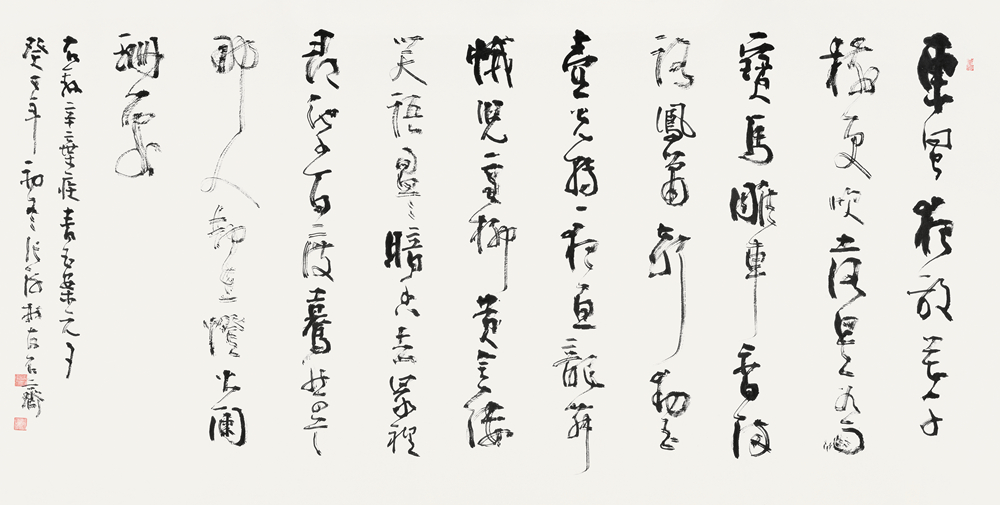 東風夜放花千
樹更吹落星如雨
寶馬雕車香滿
路鳳簫聲動玉
壺光轉一夜魚龍舞
蛾兒雪柳黃金縷
笑語盈〻暗香去眾裡
尋他千百度驀然回首
那人却在燈火闌
珊處
右錄辛棄疾青玉案元夕
癸巳年初冬 於 石齋